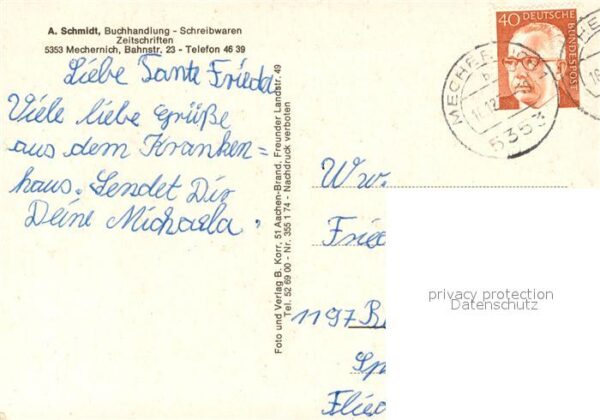 A. Schmidt, Buchhandlung - Schreibwaren
Zeitschriften
5353 Mechernich, Bahnstr. 23 - Telefon 46 39
Liebe Tante Friedel
Viele liebe Grüße
aus dem Kranken=
haus. Sendet Dir
Deine Michaela.
Foto und Verlag B. Korr, 51 Aachen-Brand, Freunder Landstr. 49
Tel. 52 69 00 - Nr. 355 1 74 - Nachdruck verboten
40 DEUTSCHE
BUNDESPOST
5353
Ww.
Fried
1197 B
Sp
Flied
privacy protection
Datenschutz